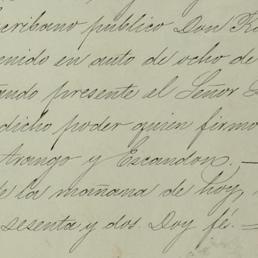 scribano publico Don
enido en auto de ocho de
ando presente el Señor
dicho poder quien firmo
Arango y Escandon. —
e la mañana de hoy,
sesenta y dos. Doy fé. —